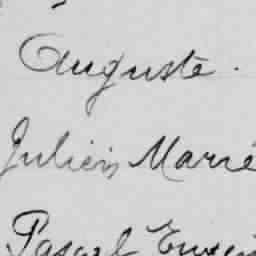 Auguste.
Julien Marie
Pascal Eugen